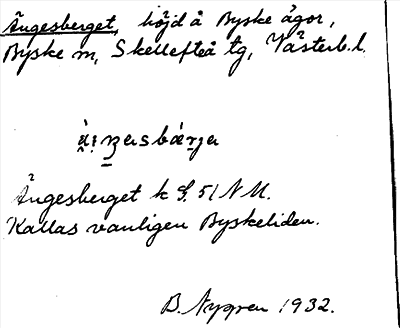 Ängesberget, höjd å Byske ägor,
Byske sn, Skellefteå tg, Västerb. l.
Ängesberget k S. 51 N M.
Kallas vanligen Byskeliden.
B. Nygren 1932.